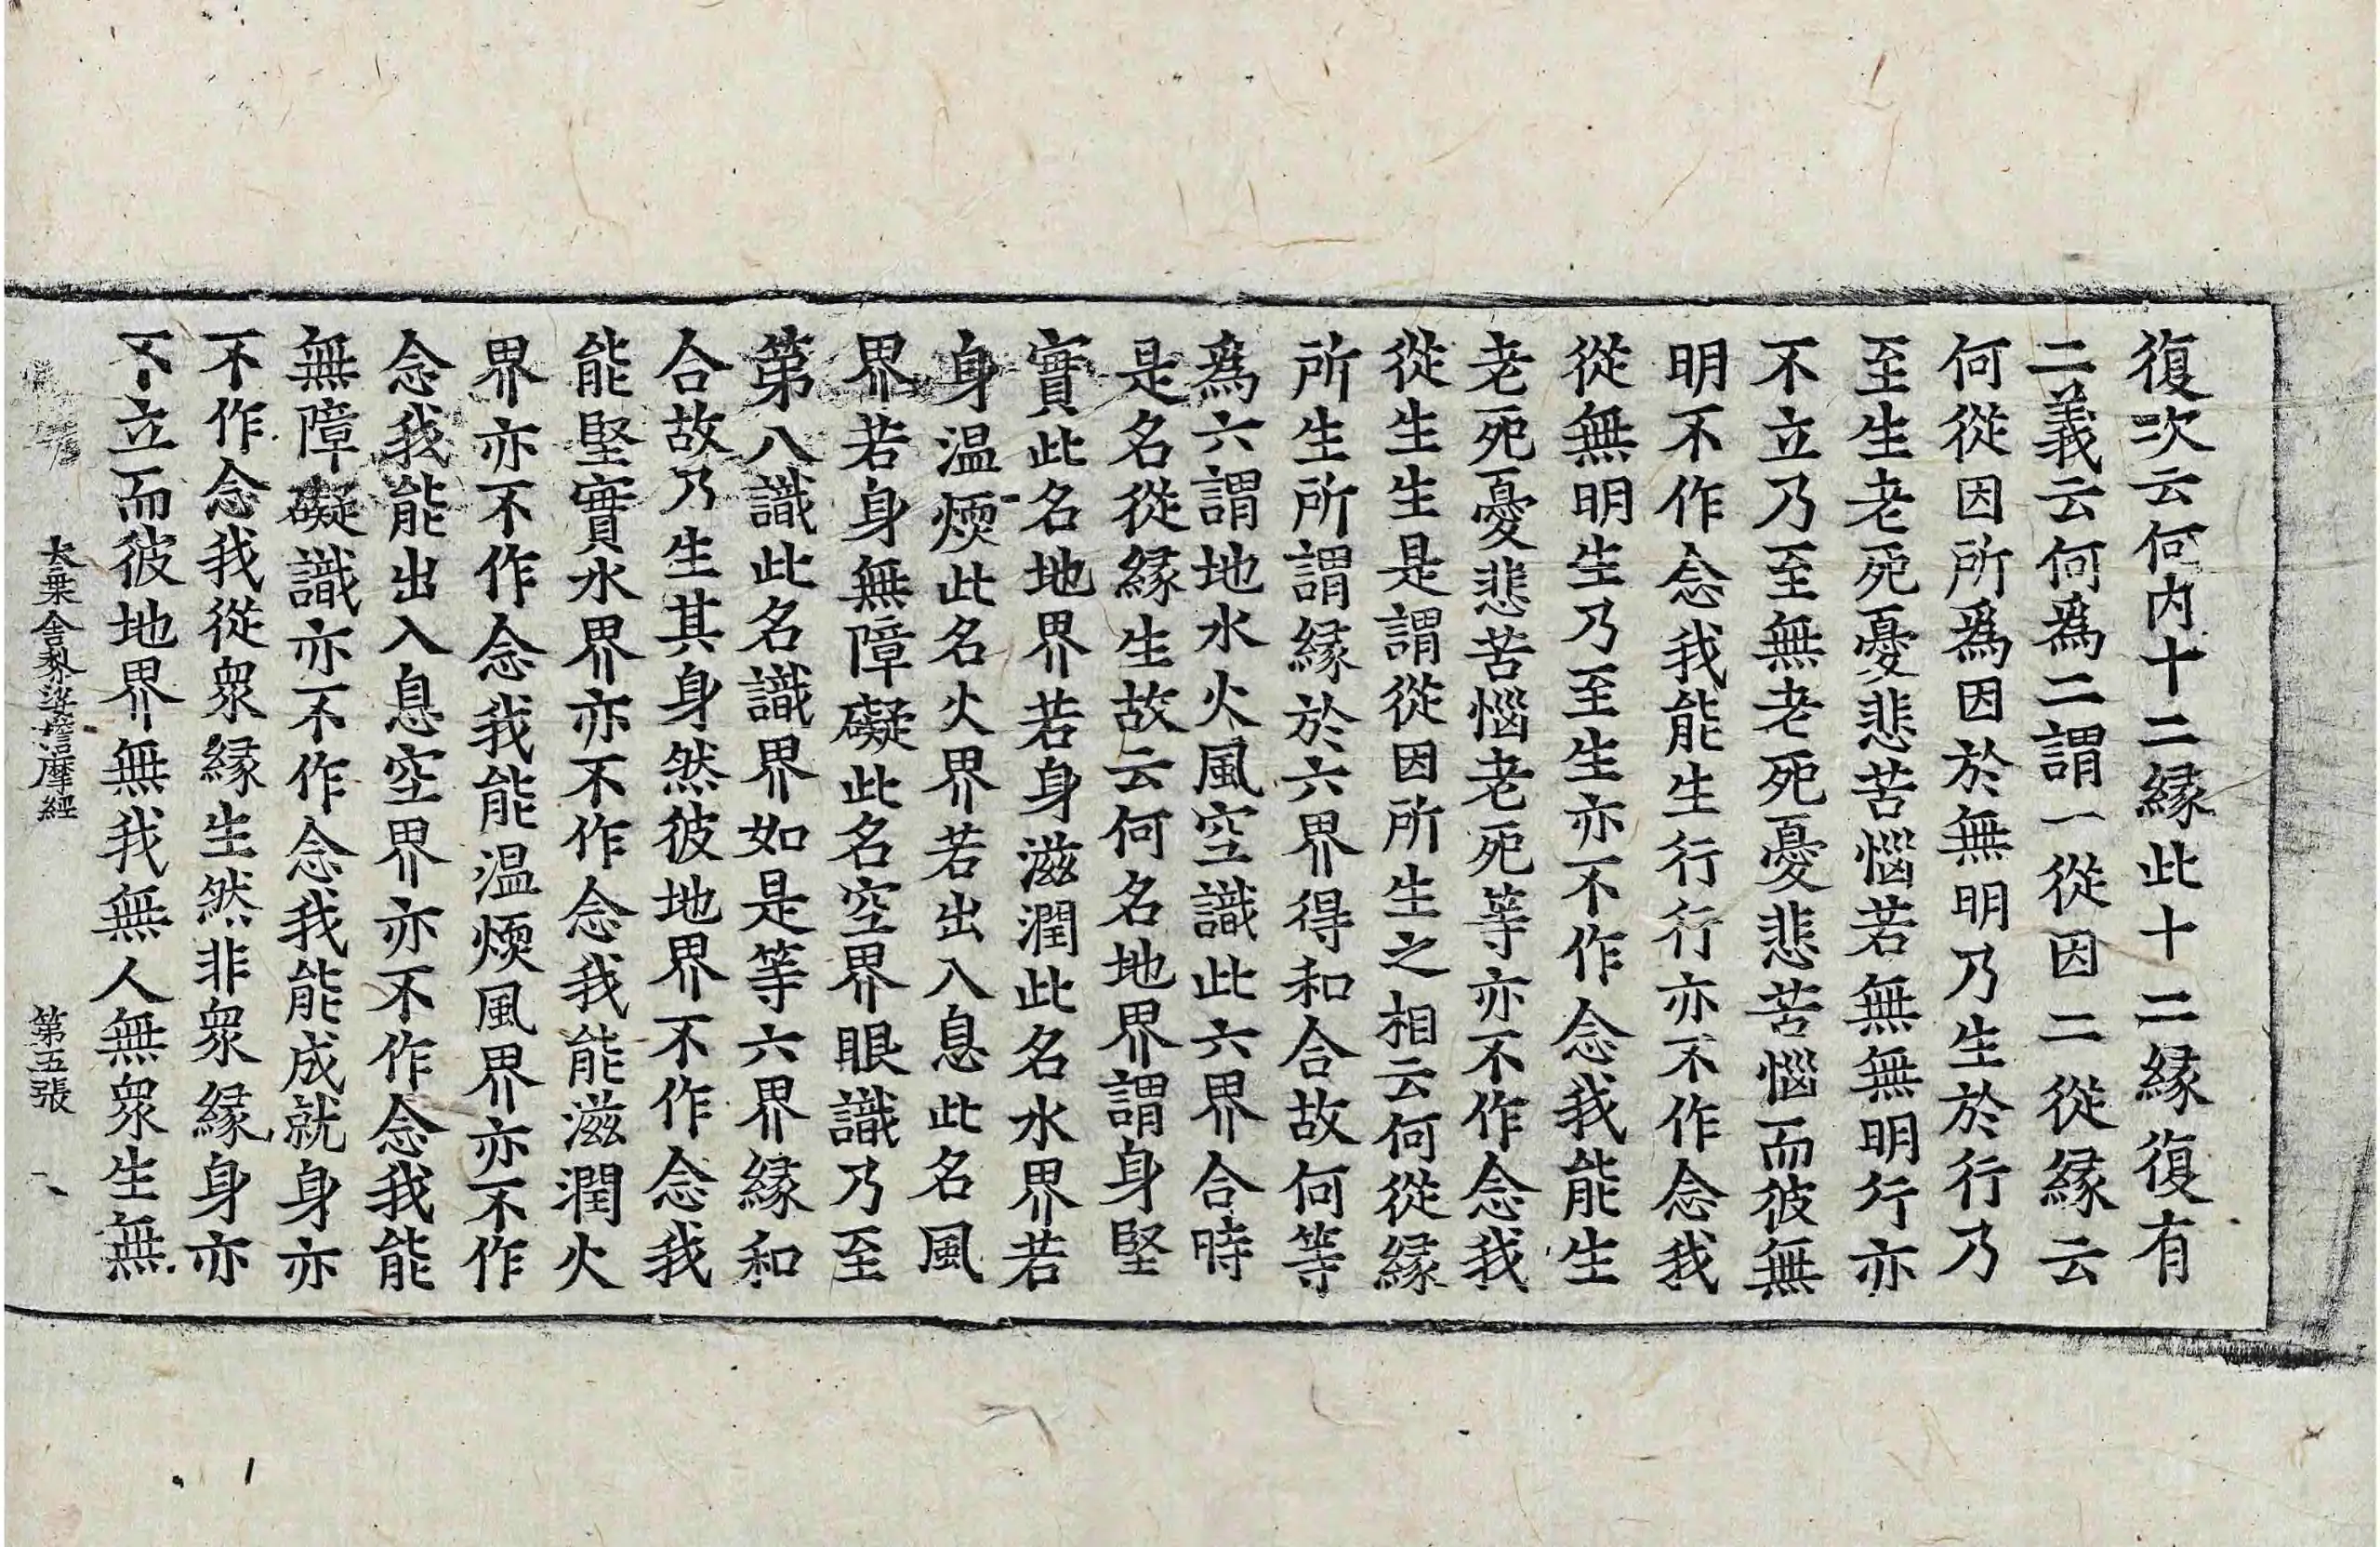 復次云何内十二縁此十二縁復有
二義云何爲二謂一從因二從縁云
何從因所爲因於無明乃生於行乃
至生老死憂悲苦惱若無無明行亦
不立乃至無老死憂悲苦惱而彼無
明不作念我能生行行亦不作念我
從無明生乃至生亦不作念我能生
老死憂悲苦惱老死等亦不作念我
從生生是謂從因所生之相云何從縁
所生所謂縁於六界得和合故何等
爲六謂地水火風空識此六界合時
是名從縁生故云何名地界謂身堅
實此名地界若身滋潤此名水界若
身温煗此名火界若出入息此名風
界若身無障礙此名空界眼識乃至
第八識此名識界如是等六界縁和
合故乃生其身然彼地界不作念我
能堅實水界亦不作念我能滋潤火
界亦不作念我能温煗風界亦不作
念我能出入息空界亦不作念我能
無障礙識亦不作念我能成就身亦
不作念我從衆縁生然非衆縁身亦
不立而彼地界無我無人無衆生無
大乗舍黎娑擔摩經 第五張